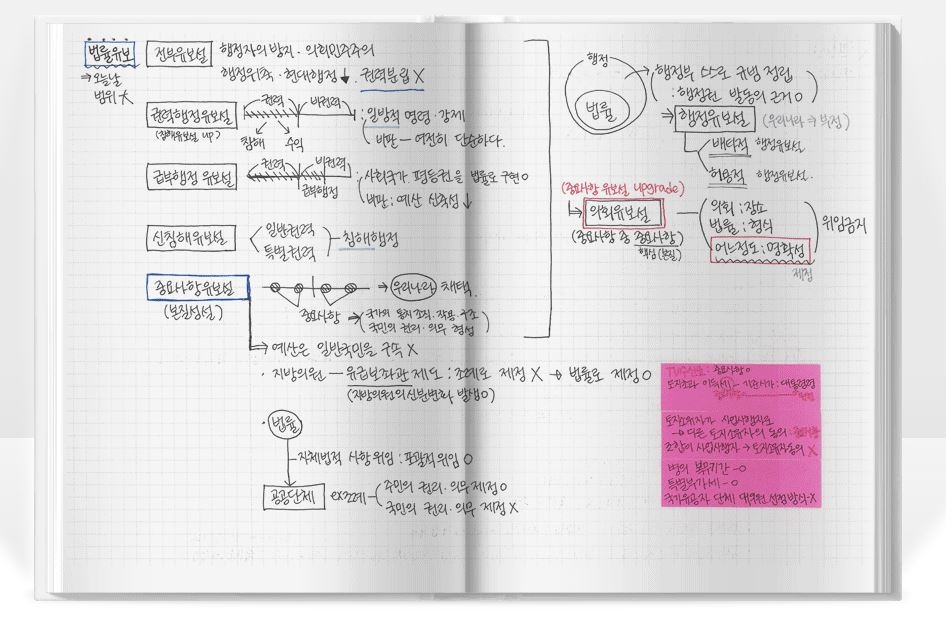 법률유보
⇒ 오늘날
범위 大
전부유보설
행정자의 방지 · 의회민주주의
행정위축 · 현대행정 ↓ 권력분립 X
권력행정유보설
(침해유보설 UP)
권력 비권력
침해 수익
: 일방적 명령 · 강제
비판 — 여전히 단순하다.
급부행정 유보설
권력 비권력
급부행정
: 사회국가 · 평등권을 법률로 구현 o
비판 : 예산 신축성 ↓
신침해유보설
일반권력
특별권력
침해행정
중요사항유보설
(본질성설)
→ 우리나라 채택.
중요사항 → 국가의 통치조직 · 작용 · 구조
국민의 권리 · 의무 형성
→ 예산은 일반국민을 구속 X
· 지방의원 — 유급보좌관 제도 : 조례로 제정 X → 법률로 제정 O
(지방의원의 신분변화 발생 o)
· 법률
자체법적 사항 위임 : 포괄적위임 O
공공단체
ex 조례
주민의 권리 · 의무 제정 O
국민의 권리 · 의무 제정 X
행정
법률
행정부 스스로 규범 정립
: 행정권 발동의 근거 o
⇒ 행정유보설 (우리나라 ⇒ 부정)
배타적 행정유보설
허용적 행정유보설.
(중요사항 유보설 upgrade)
의회유보설
(중요사항 중 중요사항)
핵심(본질)
의회 : 장소
법률 : 형식
어느정도 : 명확성
제정
위임금지
TV수신료 : 중요사항 o
토지초과 이득세 – 기준시가 : 대통령령
토지소유자가 사업시행자로
→ 다른 토지소유자의 동의 : 중요사항
조합이 사업시행자 → 토지소유자동의 X
병의 복무기간 – o
특별부가세 – o
국가유공자 단체 대의원 선정방식 – X